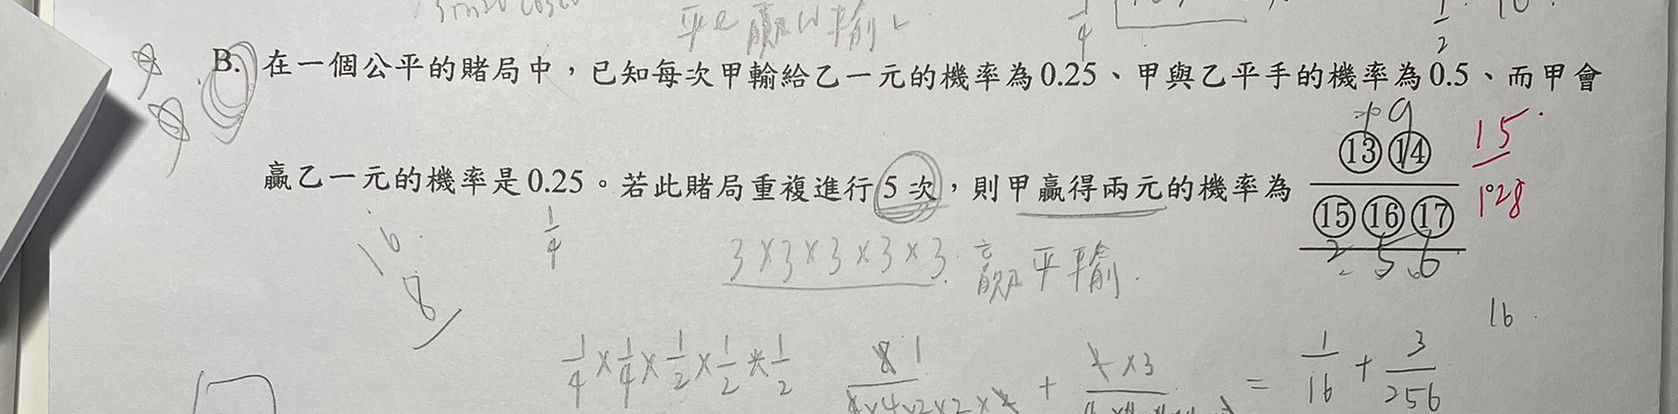 平e 贏W 輸L
1/4
1/2
B. 在一個公平的賭局中，已知每次甲輸給乙一元的機率為0.25、甲與乙平手的機率為0.5、而甲會
贏乙一元的機率是0.25。若此賭局重複進行5次，則甲贏得兩元的機率為 ⑬⑭/⑮⑯⑰
15/128
1/4
2 5 6
16
8
3×3×3×3×3 贏平輸
16
1/4×1/4×1/2×1/2×1/2
= 1/16 + 3/256